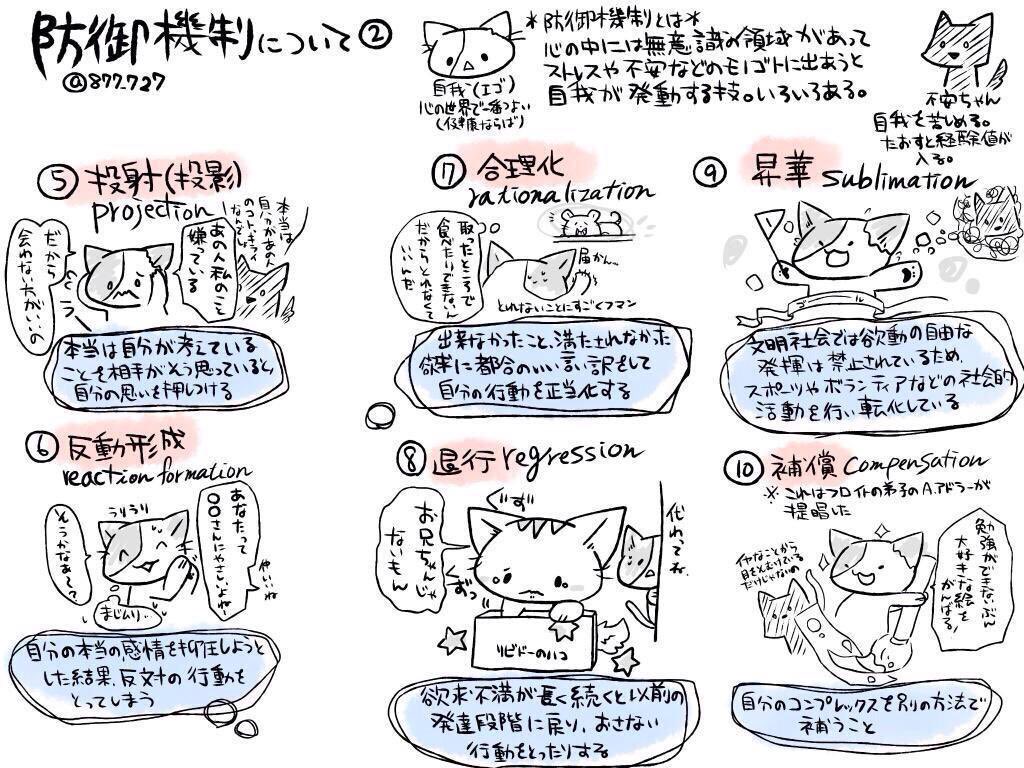 防御機制について②
@877_727
自我(エゴ)
心の世界で一番つよい
(健康ならば)
*防御機制とは*
心の中には無意識の領域があって
ストレスや不安などのモノゴトに出あうと
自我が発動する技。いろいろある。
不安ちゃん
自我を苦しめる。
たおすと経験値が
入る。
⑤ 投射(投影)
projection
本当は
自分があの人
のコト、キライ
なんでしょ
あの人私のこと
嫌っている
だから
会わない方がいいの
本当は自分が考えている
ことを相手がそう思っていると、
自分の思いを押しつける
⑥ 反動形成
reaction formation
うりうり
あなたって
○○さんにやさしいよね
そうかなぁ〜
まじムリ…
自分の本当の感情を抑圧しようと
した結果、反対の行動を
とってしまう
⑦ 合理化
rationalization
取ったところで
食べたりできない
だからとれなくて
いいんだ
届かん…
とれないことにすごくフマン
出来なかったこと、満たされなかった
欲求に都合のいい言い訳をして
自分の行動を正当化する
⑧ 退行 regression
ぐず
お兄ちゃんじゃ
ないもん
ずっ
代わってね
リビドーのハコ
欲求不満が長く続くと以前の
発達段階に戻り、おさない
行動をとったりする
⑨ 昇華 sublimation
ゴール
文明社会では欲動の自由な
発揮は禁止されているため、
スポーツやボランティアなどの社会的
活動を行い転化している
⑩ 補償 compensation
※これはフロイトの弟子のA.アドラーが
提唱した
イヤなことから
目をそむけている
だけじゃないの
勉強ができないぶん
大好きな絵を
がんばる!
自分のコンプレックスを別の方法で
補うこと